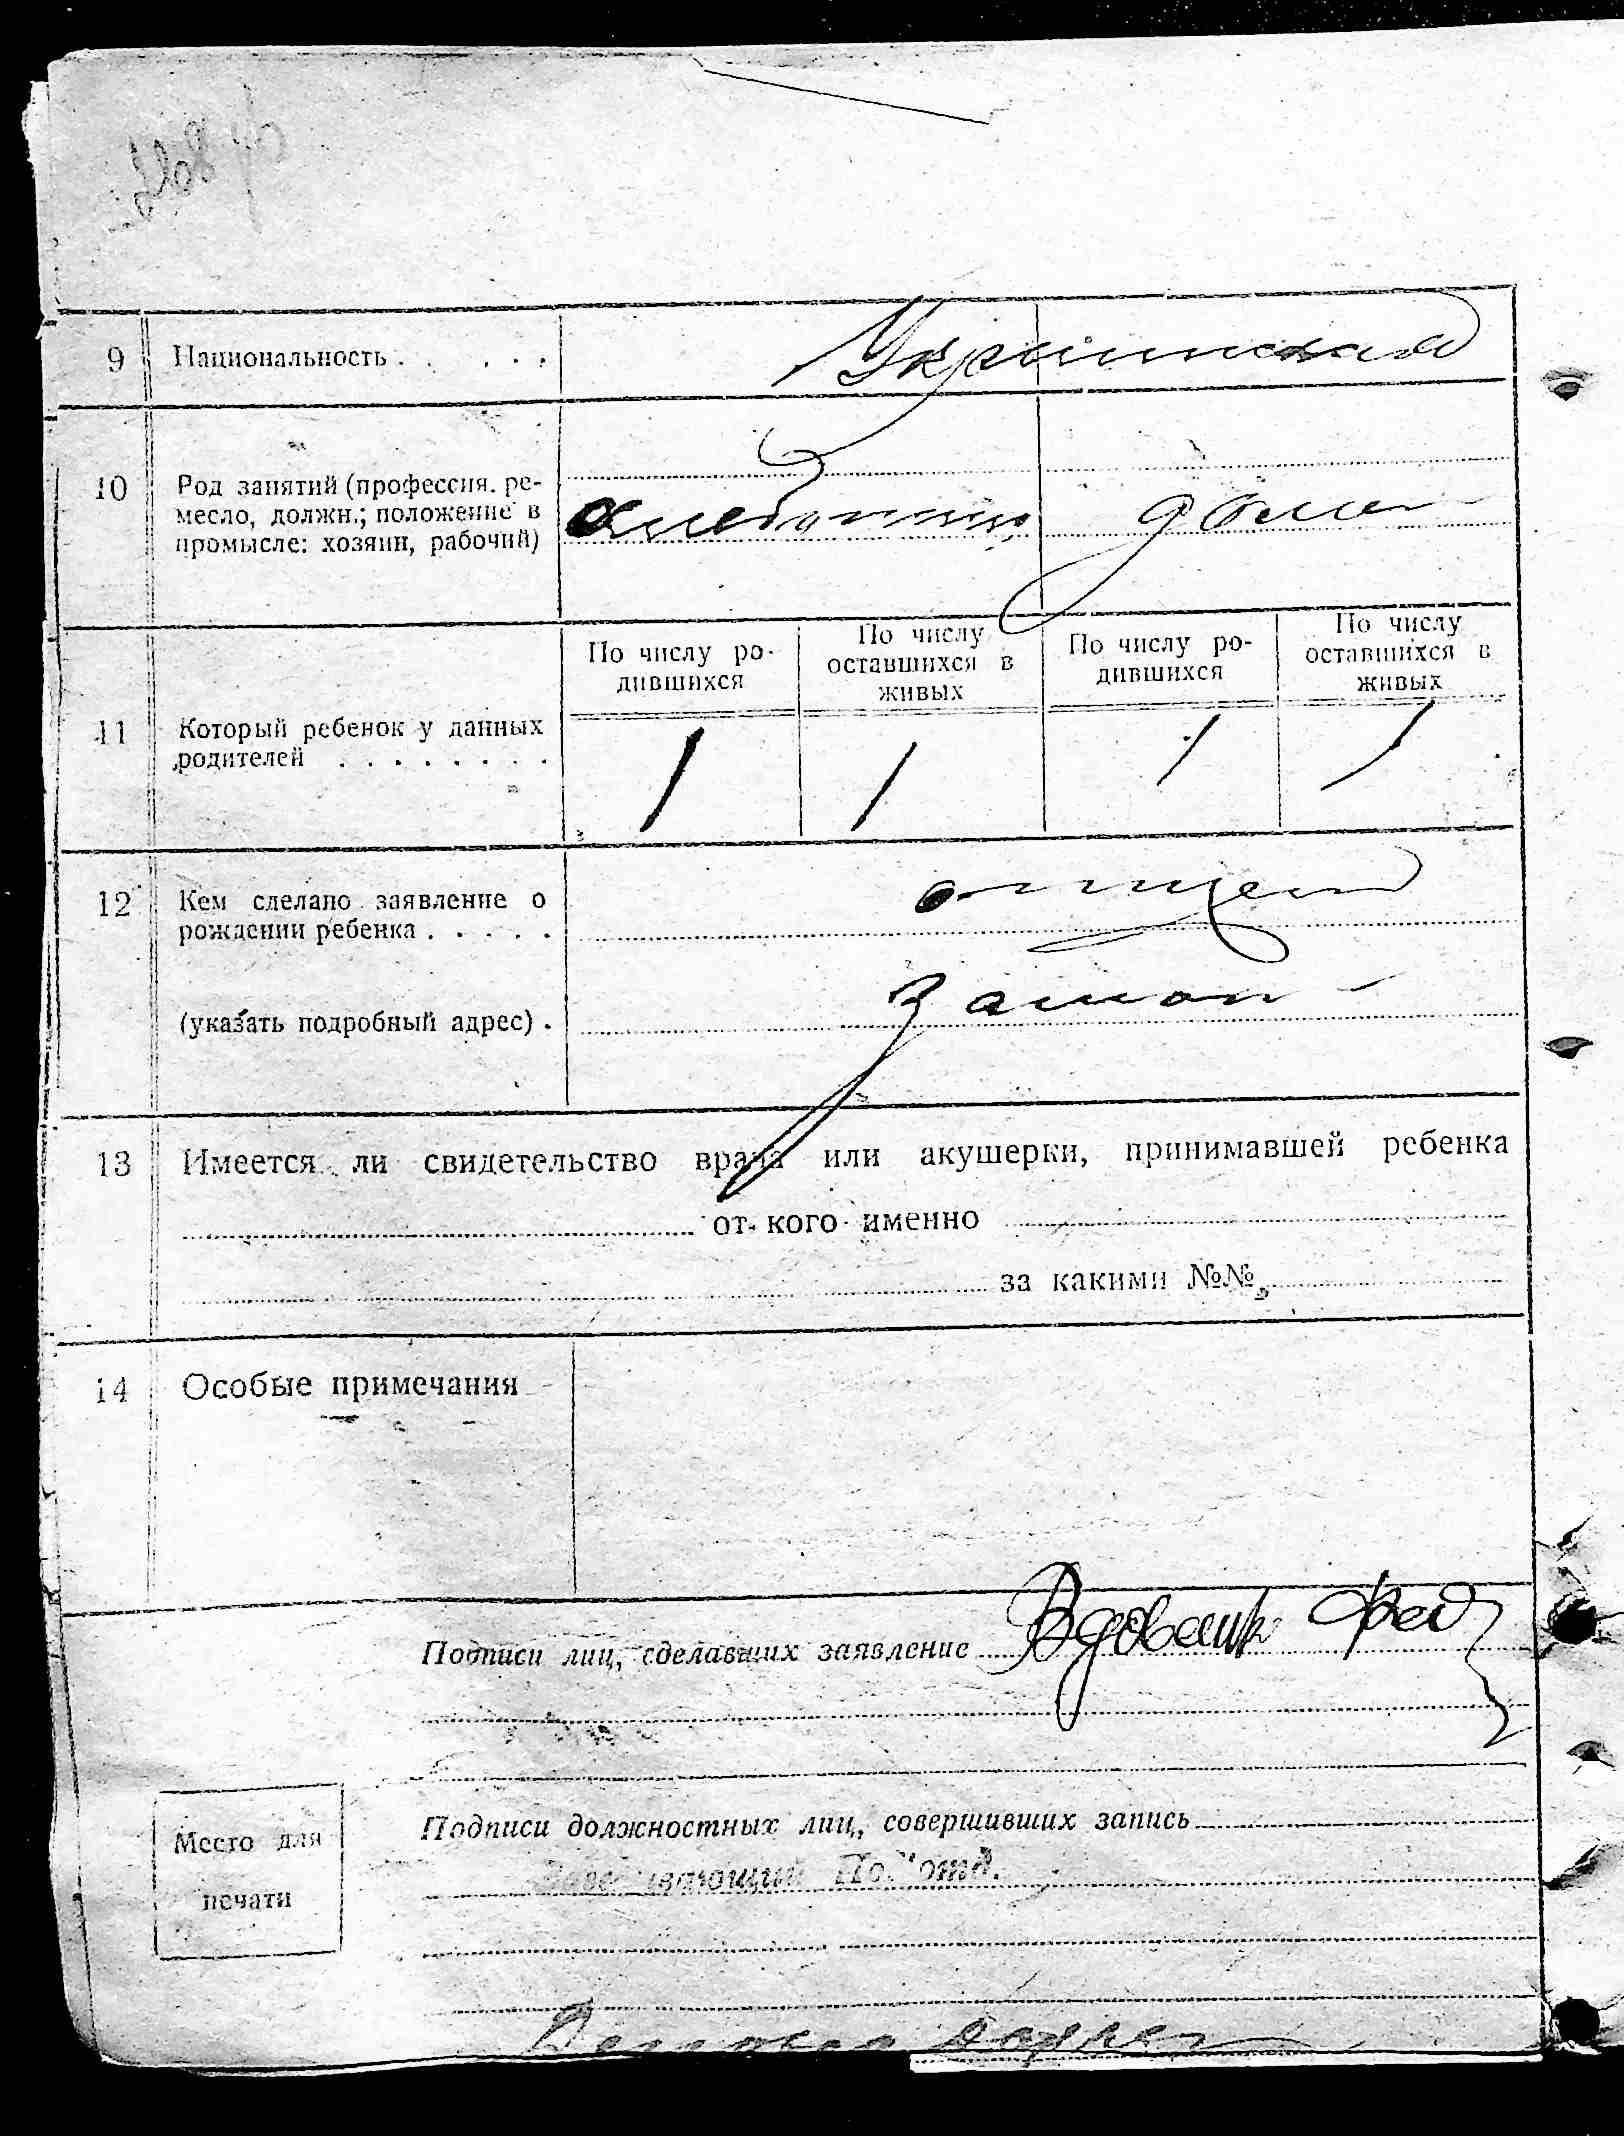 9 Национальность . . . . . . Украинская
10 Род занятий (профессия. ре-
месло, должн.; положение в
промысле: хозяин, рабочий)
дома
По числу ро-
дившихся
По числу
оставшихся в
живых
По числу ро-
дившихся
По числу
оставшихся в
живых
11 Который ребенок у данных
родителей . . . . . . . .
1 1 1 1
12 Кем сделано заявление о
рождении ребенка . . . . .
отцем
(указать подробный адрес) .
13 Имеется ли свидетельство врача или акушерки, принимавшей ребенка
от кого именно
за какими №№
14 Особые примечания
Подписи лиц, сделавших заявление Вдовенко Фед
Место для
печати
Подписи должностных лиц, совершивших запись
Заведывающий Под'отд.